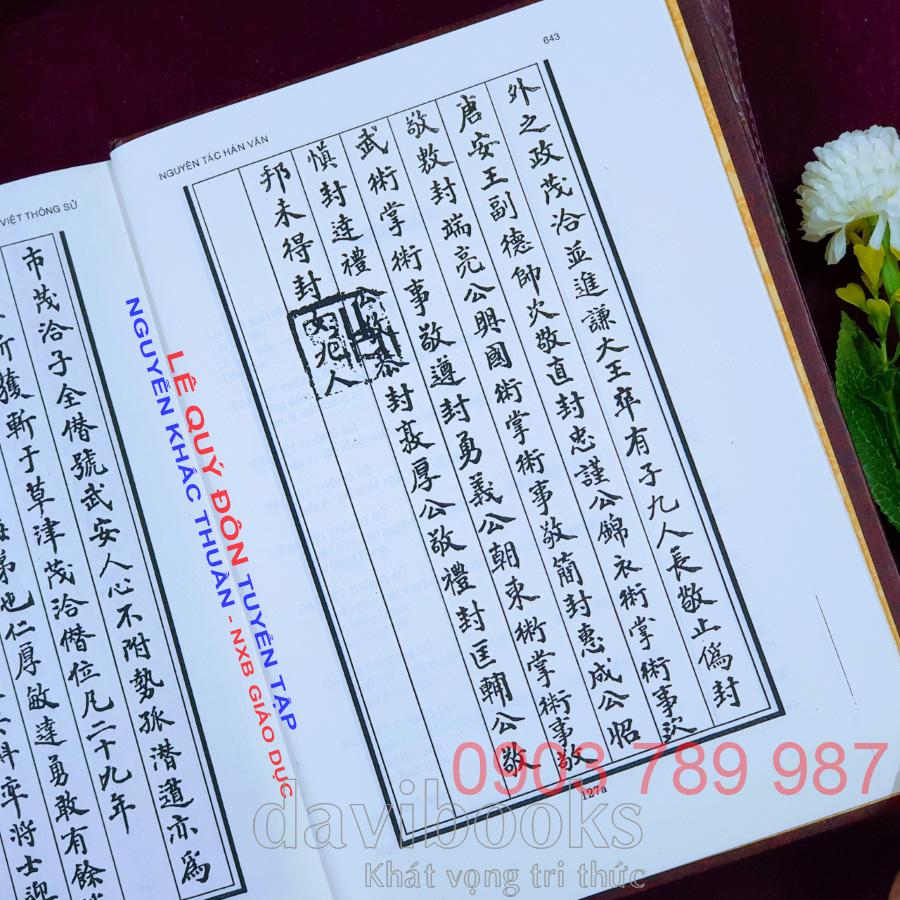 643
NGUYÊN TÁC HÁN VĂN
外之政茂洽並進謙大王卒有子九人長敬止僞封
唐安王副德帥次敬直封忠謹公錦衣術掌術事欽
敬敷封端亮公興國術掌術事敬簡封惠成公昭
武術掌術事敬遵封勇義公朝東術掌術事敬
慎封達禮公敬恭封厚公敬禮封匡輔公敬
邦未得封女九人
127a
VIỆT THÔNG SỬ
市茂洽子全僭號武安人心不附勢孤潛道亦爲
所獲斬于草津茂洽僭位凡二十九年
弟也仁厚敏達勇敢有餘
率將士迎
LÊ QUÝ ĐÔN TUYỂN TẬP
NGUYỄN KHẮC THUẦN - NXB GIÁO DỤC
0903 789 987
davibooks
Khát vọng tri thức